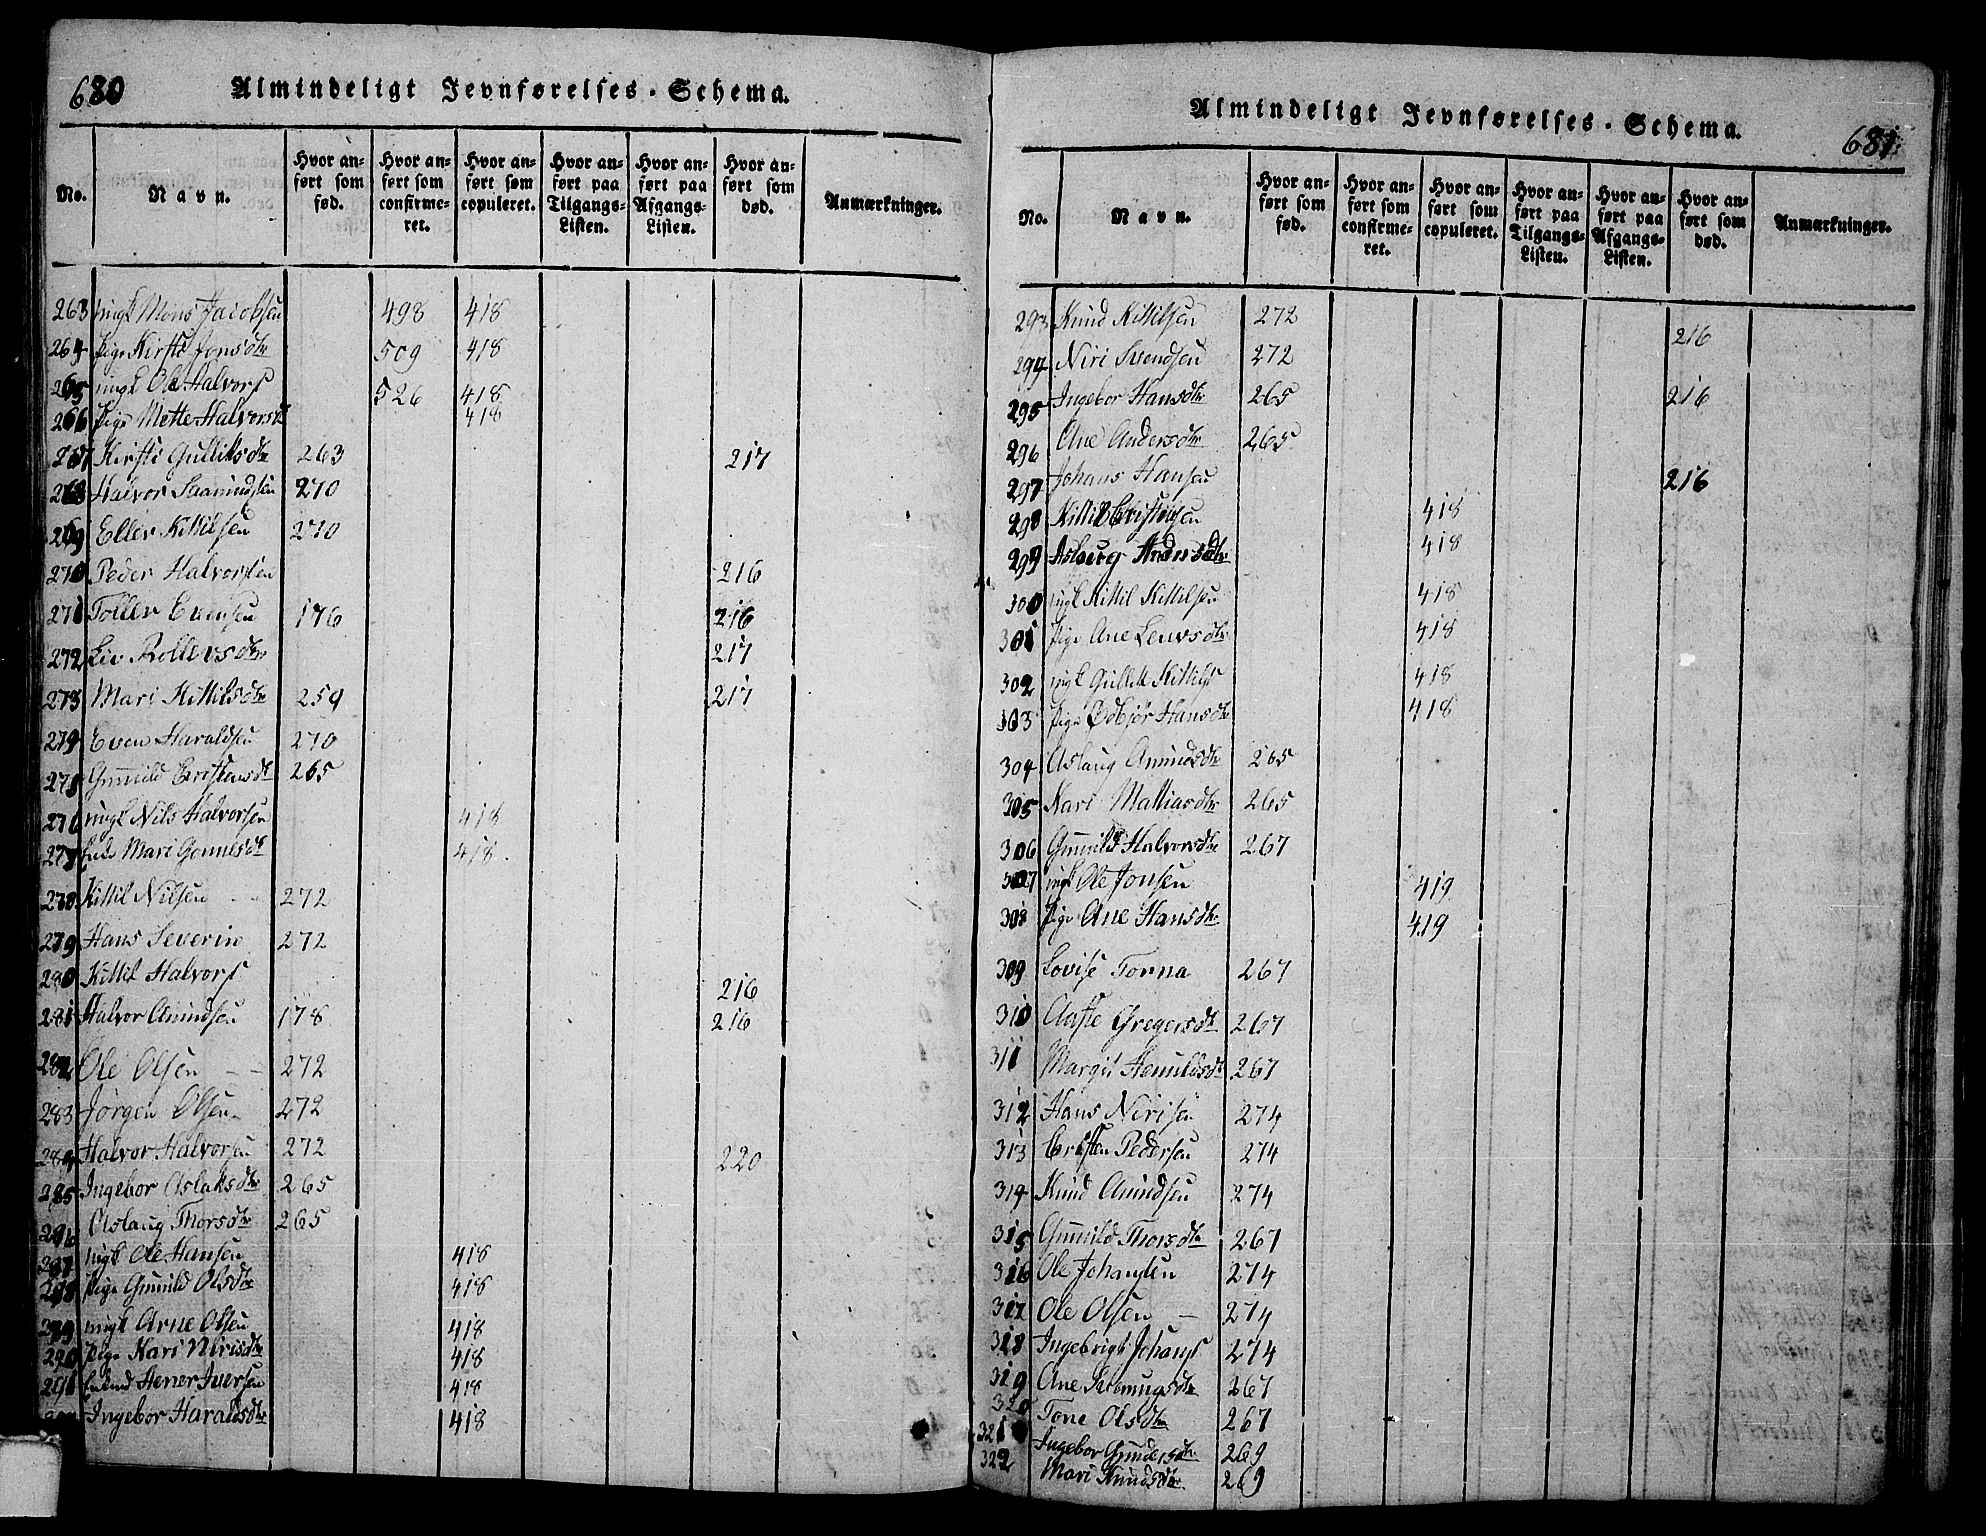 680
Almindeligt Jevnførelses-Schema.
No.
Navn.
Hvor anført som fød.
Hvor anført som confirmeret.
Hvor anført som copuleret.
Hvor anført paa Tilgangs-Listen.
Hvor anført paa Afgangs-Listen.
Hvor anført som død.
Anmærkninger.
263 ungk Mons Jacobsen 498 418
264 Pige Kirsti Jonsdtr 509 418
265 ungk Ole Halvors 526 418
266 Pige Mette Halvorsdtr 418
267 Kirsti Gulliksdtr 263 217
268 Halvor Saamundsen 270
269 Eller Kittilsen 270
270 Peder Halvorsen 216
271 Toller Evensen 176 216
272 Liv Rollevsdtr 217
273 Mari Kittilsdtr 259 217
274 Even Haraldsen 270
275 Gunnild Cristensdtr 265
276 ungk Nils Halvorsen 418
277 Mari Gonnesdtr 418
278 Kittil Nilsen 272
279 Hans Severin 272
280 Kittil Halvors 216
281 Halvor Amundsen 178 216
282 Ole Olsen 272
283 Jørgen Olsen 272
284 Halvor Halvorsen 272 220
285 Ingebor Aslaksdtr 265
286 Aslaug Thorsdtr 265
287 ungk Ole Hansen 418
288 Pige Gunnild Olsdtr 418
289 ungk Arne Olsen 418
290 Pige Kari Nirisdtr 418
291 Iversen 418
Ingebor Haraldsdtr 418
681
Almindeligt Jevnførelses-Schema.
No.
Navn.
Hvor anført som fød.
Hvor anført som confirmeret.
Hvor anført som copuleret.
Hvor anført paa Tilgangs-Listen.
Hvor anført paa Afgangs-Listen.
Hvor anført som død.
Anmærkninger.
293 Knud Kittilsen 272 216
294 Niri Svendsen 272
295 Ingebor Hansdtr 265 216
296 Ane Andersdtr 265
297 Johans Hansen 216
298 Kittil Cristensen 418
299 Asberg Andersdtr 418
300 ungk Kittil Kittilsen 418
301 Pige Ane Leuvsdtr 418
302 ungk Gullik Kittils 418
303 Pige Odbjør Hansdtr 418
304 Aslaug Amundsdtr 265
305 Kari Mattiasdtr 265
306 Gunnild Halvorsdtr 267
307 ungk Ole Jonsen 419
308 Pige Ane Hansdtr 419
309 Lovise Torna 267
310 Aaste Gregersdtr 267
311 Margit 267
312 Hans Nirisen 274
313 Cristen Pedersen 274
314 Knud Amundsen 274
315 Gunnild Thorsdtr 267
316 Ole Johansen 274
317 Ole Olsen 274
318 Ingebrigt Johans 274
319 Ane 267
320 Tone Olsdtr 267
321 Ingebor Gundersdtr 269
322 Mari Knudsdtr 269